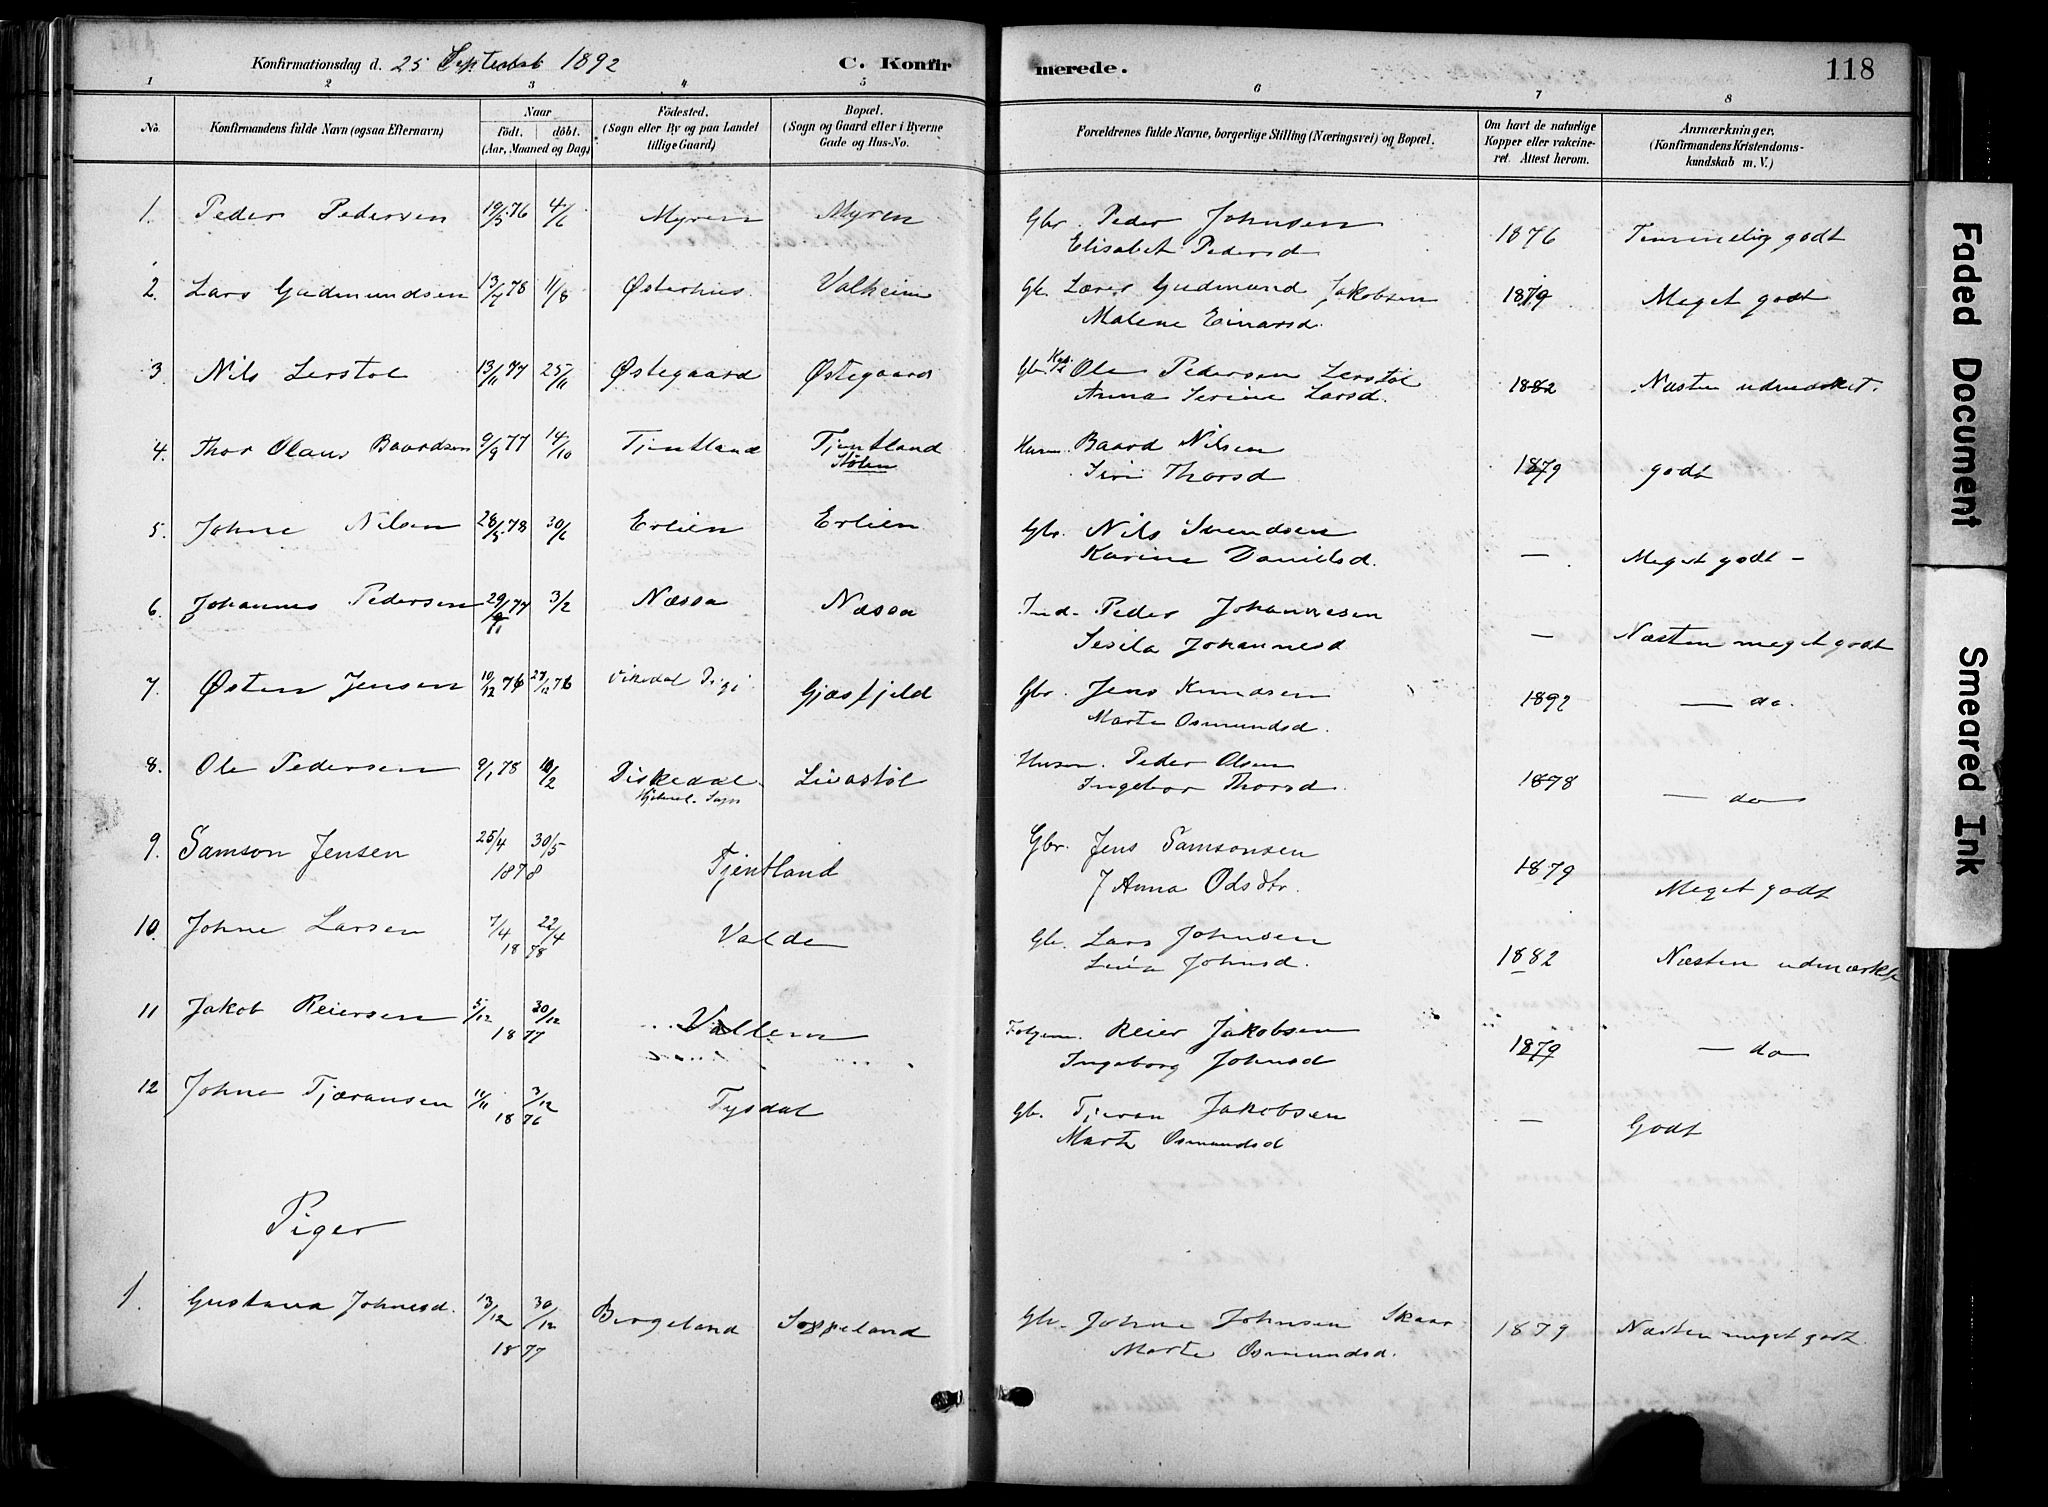 Konfirmationsdag d. 25 September 1892 C. Konfirmerede. 118
1 2 3 4 5 6 7 8
No. Konfirmandens fulde Navn (ogsaa Efternavn) Naar Födt. döbt. (Aar, Maaned og Dag) Födested. (Sogn eller By og paa Landet tillige Gaard) Bopæl. (Sogn og Gaard eller i Byerne Gade og Hus-No. Forældrenes fulde Navne, borgerlige Stilling (Næringsvei) og Bopæl. Om havt de naturlige Kopper eller vakcineret. Attest herom. Anmærkninger. (Konfirmandens Kristendomskundskab m. V.)
1. Peder Pedersen 19/5 76 4/6 Myren Myren Gbr. Peder Johnsen 1876 Temmelig godt
Elisabet Pedersd
2. Lars Gudmundsen 13/7 78 11/8 Østerhus Valheim Gb. Lærer Gudmund Jakobsen 1879 Meget godt
Malene Einarsd.
3. Nils Lerstøl 13/11 77 25/11 Østegaard Østegaard Gbr. Ole Pedersen Lerstøl 1882 Næsten udmærket.
Anna Serine Larsd.
4. Thor Olaus Baardsen 9/9 77 14/10 Tjentland Tjentland Støle Husm. Baard Nilsen 1879 godt
Siri Thorsd
5. Johne Nilsen 28/5 78 30/6 Erlien Erlien Gbr. Nils Svendsen
Karine Danielsd. — Meget godt -
6. Johannes Pedersen 29/11 77 3/2 Næssa Næssa Ind. Peder Johannesen
Sesila Johannesd — Næsten meget godt
7. Østen Jensen 10/12 76 27/12 76 Vikedal Gjæsfjeld Gbr. Jens Knudsen 1892 — do.
Marte Osmundsd.
8. Ole Pedersen 9/1 78 10/2 Diskedal Livastøl Husm. Peder Olsen
Hjelmel. Sogn Ingebor Thorsd 1878 — do
9. Samson Jensen 25/4 30/5 1878 Tjentland Gbr. Jens Samsonsen 1879 Meget godt
J Anna Odsdtr.
10. Johne Larsen 7/4 22/4 1878 Valde Gb. Lars Johnsen 1882 Næsten udmærket
Johnsd.
11 Jakob Reiersen 5/12 30/12 1877 Vallem Reier Jakobsen 1879 — do
Ingeborg Johnsd
12 Johne Tjøransen 11/11 3/12 1876 Tysdal Gb. Tjøran Jakobsen — Godt
Marte Osmundsd
Piger
1. Gustava Johnesd. 13/12 30/12 1877 Bergeland Soppeland Gb. Johne Johnsen Skaar 1879 Næsten meget godt
Marte Osmundsd.
Faded Document
Smeared Ink